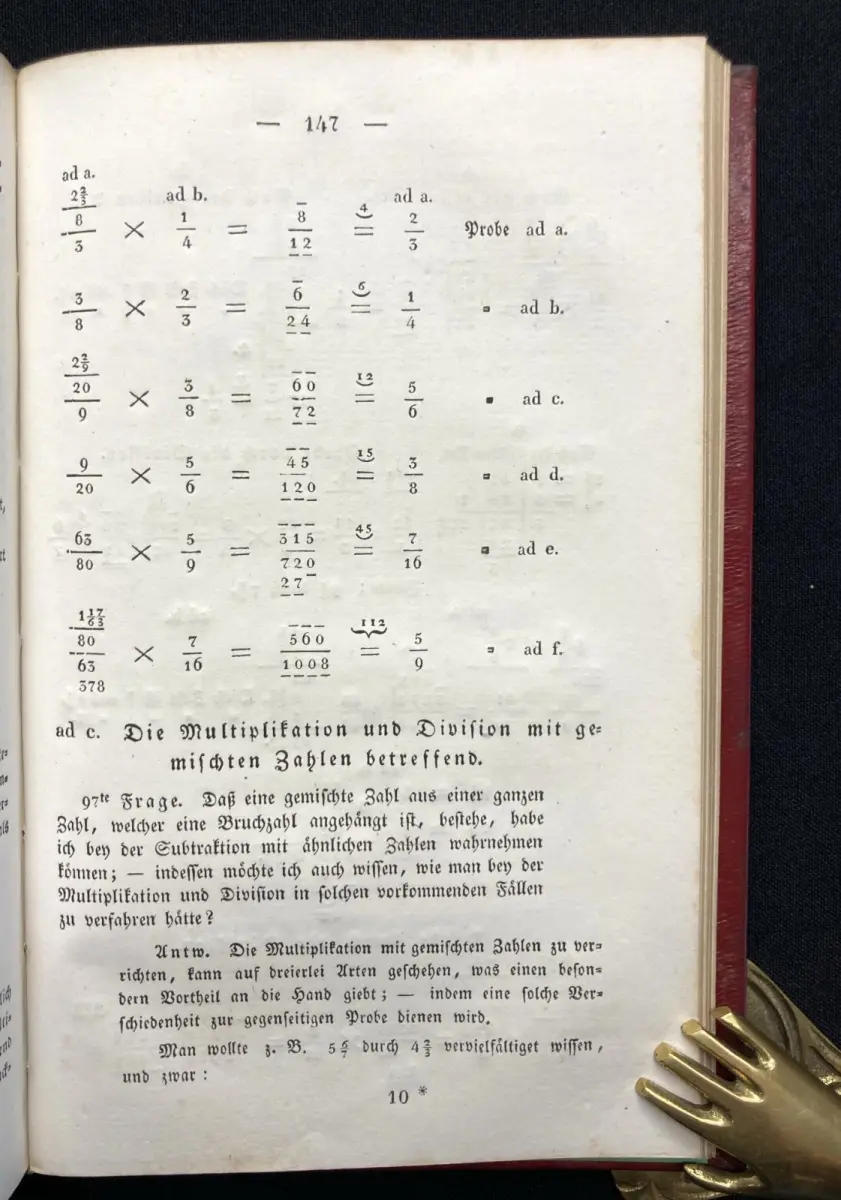 — 147 —
ad a.
2 2/3 ad b. — 4 ad a.
8/3 × 1/4 = 8/12 = 2/3 Probe ad a.
3/8 × 2/3 = 6/24 6 = 1/4 " ad b.
2 2/9
20/9 × 3/8 = 60/72 12 = 5/6 " ad c.
9/20 × 5/6 = 45/120 15 = 3/8 " ad d.
63/80 × 5/9 = 315/720 45 = 7/16 " ad e.
27
1 17/63
80/63 × 7/16 = 560/1008 112 = 5/9 " ad f.
378
ad c. Die Multiplikation und Division mit ge=
mischten Zahlen betreffend.
97te Frage. Daß eine gemischte Zahl aus einer ganzen
Zahl, welcher eine Bruchzahl angehängt ist, bestehe, habe
ich bey der Subtraktion mit ähnlichen Zahlen wahrnehmen
können; — indessen möchte ich auch wissen, wie man bey der
Multiplikation und Division in solchen vorkommenden Fällen
zu verfahren hätte?
Antw. Die Multiplikation mit gemischten Zahlen zu ver=
richten, kann auf dreierlei Arten geschehen, was einen beson=
dern Vortheil an die Hand giebt; — indem eine solche Ver=
schiedenheit zur gegenseitigen Probe dienen wird.
Man wollte z. B. 5 6/7 durch 4 2/3 vervielfältiget wissen,
und zwar:
10 *